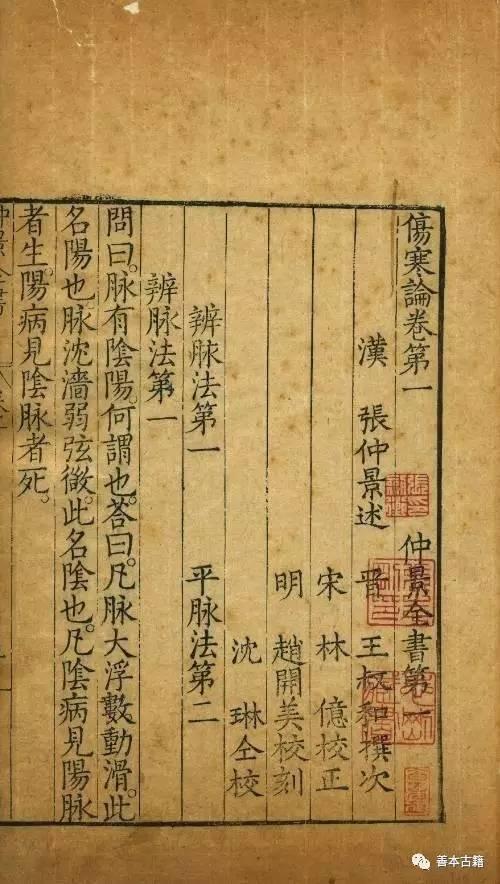 傷寒論卷第一 仲景全書第一
漢 張仲景述 晉 王叔和撰次
宋 林 億校正
明 趙開美校刻
沈 琳仝校
辨脉法第一 平脉法第二
辨脉法第一
問曰。脉有陰陽。何謂也。荅曰。凡脉大浮數動滑。此
名陽也。脉沈濇弱弦微。此名陰也。凡陰病見陽脉
者生。陽病見陰脉者死。
善本古籍